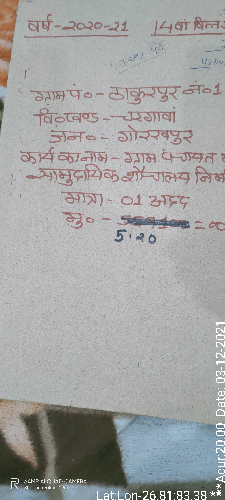 वर्ष-2020-21 14वां वित्त
ग्राम पं०- ठाकुरपुर नं०1
वि०खण्ड- चरगावां
जन०- गोरखपुर
कार्य का नाम- ग्राम पंचायत
सामुदायिक शौचालय निर्म
मात्रा- 01 अदद
मु०- =00
5.20
SHOT BY AI QUAD CAMERA
Lat:Lon-26.81:83.38
*** Acur 20.00 Date: 03-12-2021